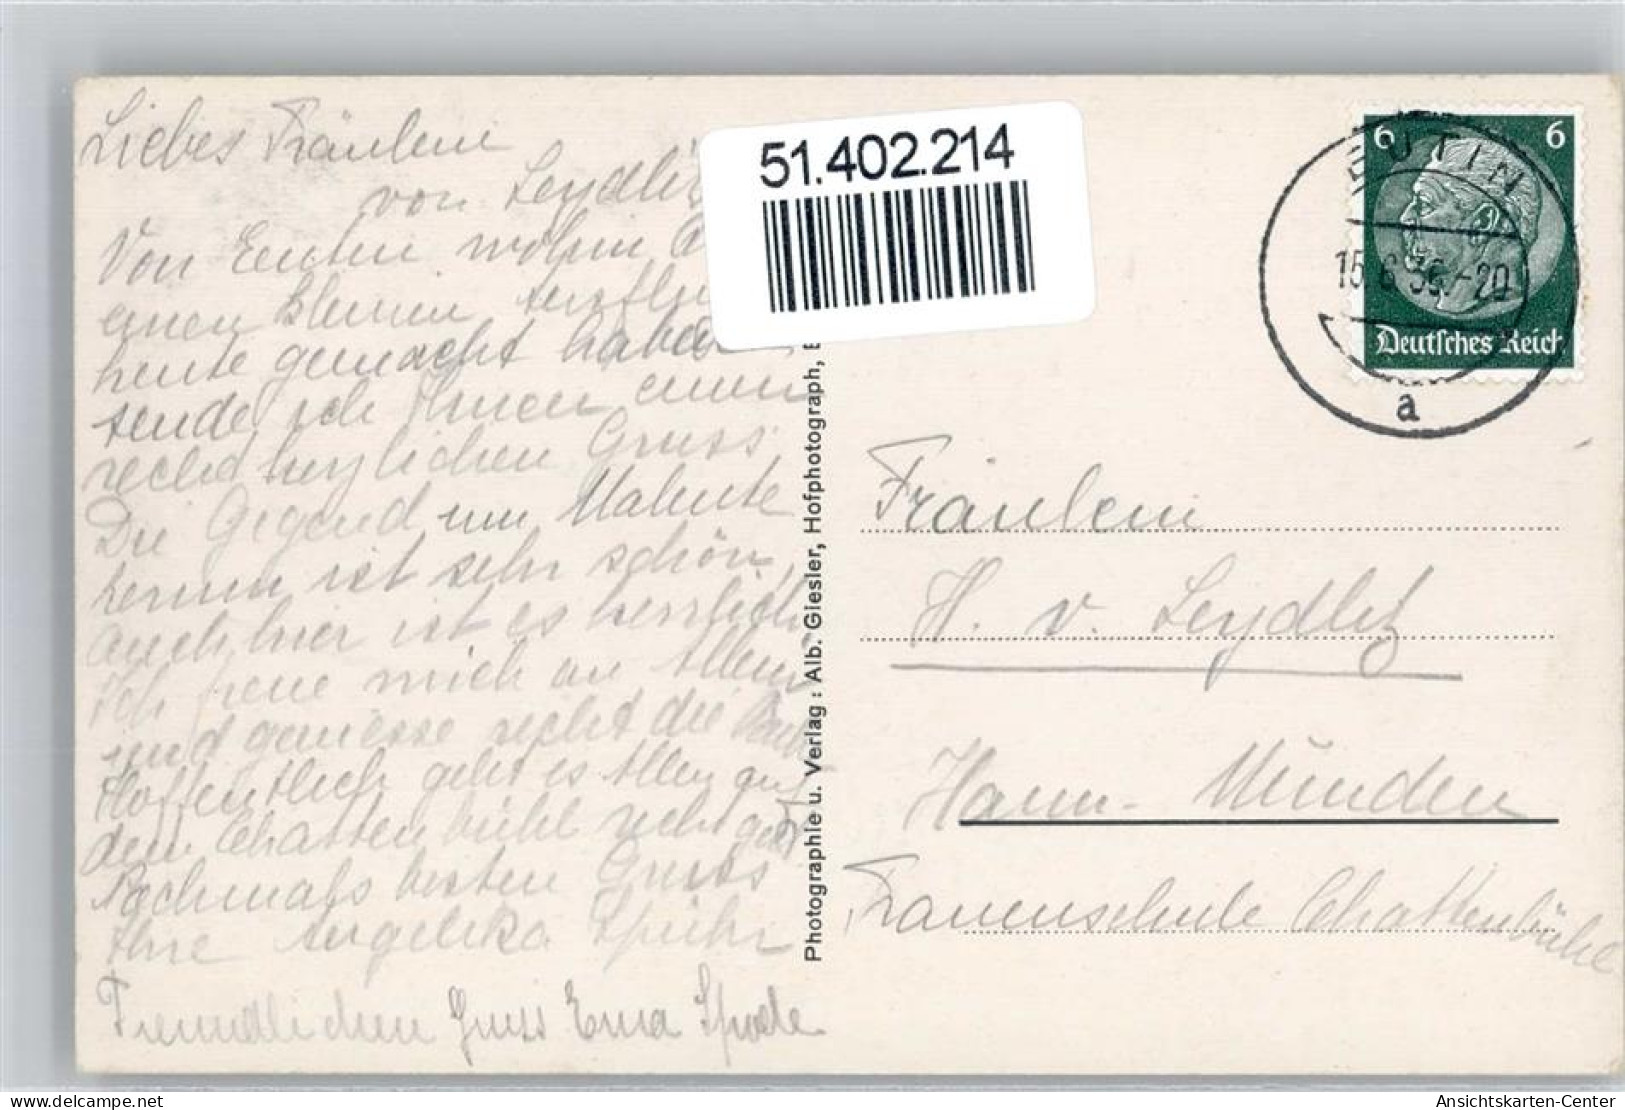 Liebes Fräulein
von Seydlitz
Von Eutin wohin
einen kleinen Ausflu
heute gemacht haben
sende ich Ihnen einen
recht herzlichen Gruss
Die Gegend um Malente
herum ist sehr schön,
auch hier ist es herrlich
Ich freue mich an Allem
und geniesse recht die
Hoffentlich geht es Allen auf
dem Chattenbühl recht gut
Nochmals besten Gruss
Ihre Angelika
Freundlichen Gruss Erna
51.402.214
Photographie u. Verlag: Alb. Giesler, Hofphotograph, E
EUTIN
15.6.36.-20
a
6 6
Deutsches Reich
Fräulein
H. v. Seydlitz
Hann. Münden
Frauenschule Chattenbühl
Ansichtskarten-Center
oldthing.com